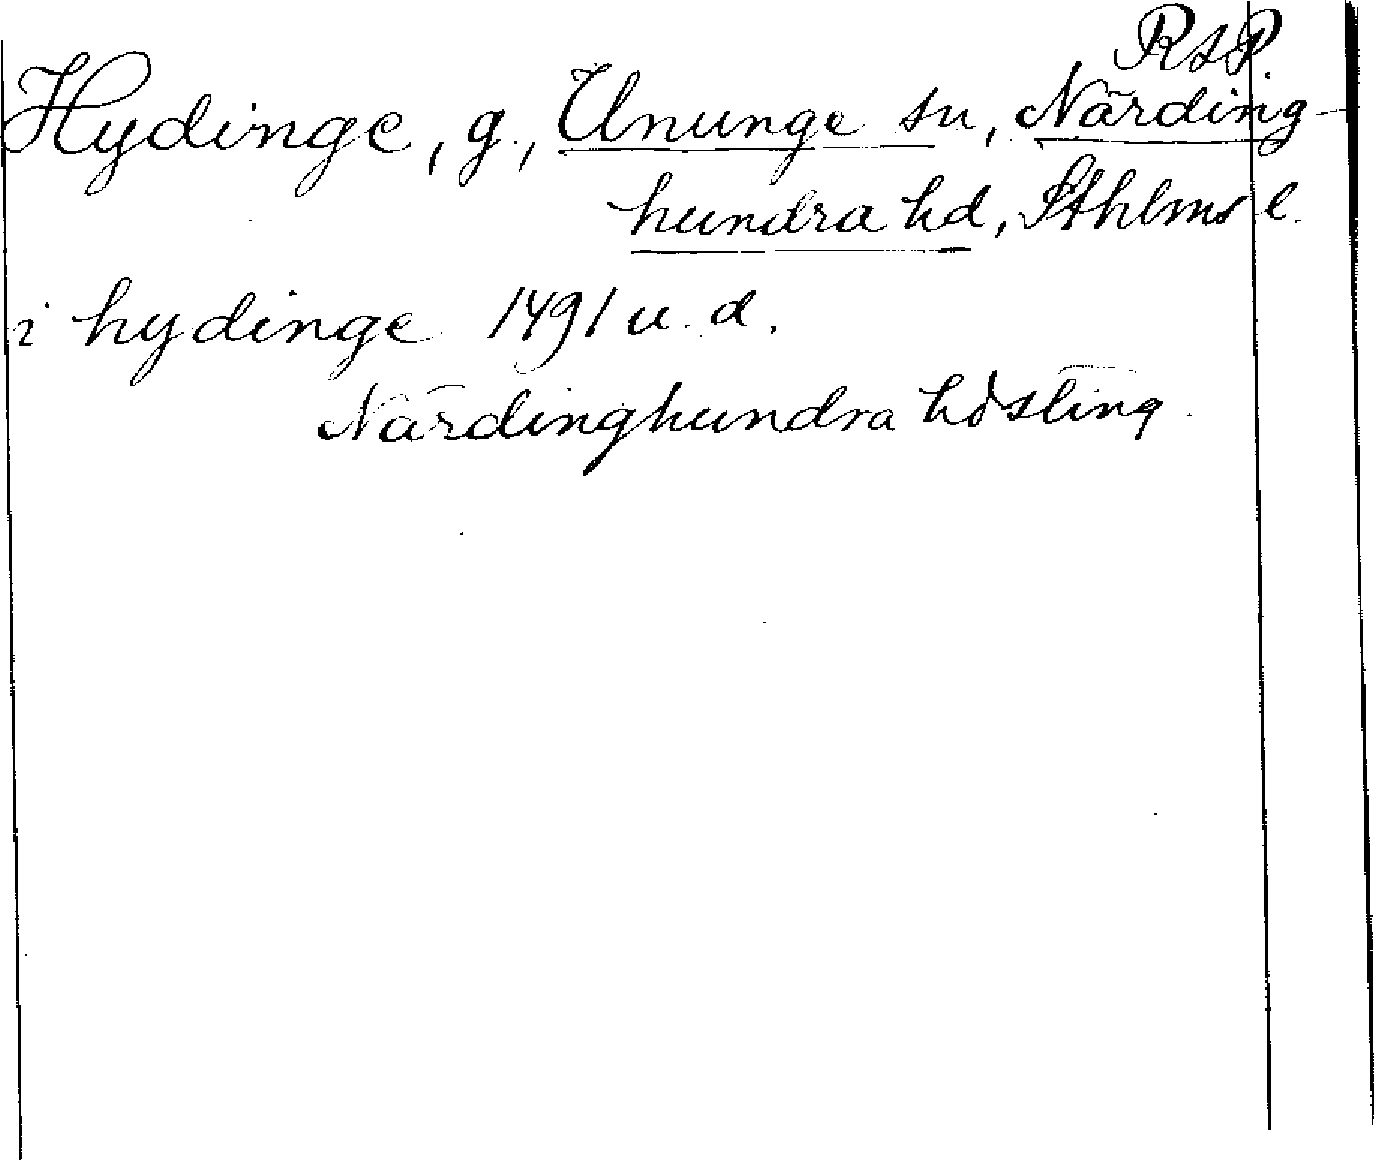 RSP.
Hydinge, g., Ununge sn, Närding-
hundra hd, Sthlms l.
i hydinge 1491 u. d.
Närdinghundra hdsting